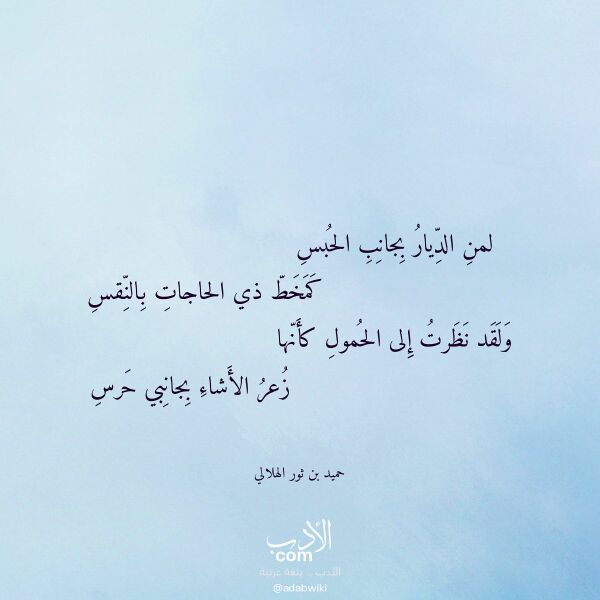 لمنِ الدِّيارُ بِجانِبِ الحُبسِ
كَمَخَطّ ذي الحاجاتِ بِالنِّقسِ
وَلَقَد نَظَرتُ إِلى الحُمولِ كأَنّها
زُعرُ الأَشاءِ بِجانِبي حَرسِ
حميد بن ثور الهلالي
الأدب
com
الأدب .. بلغة عربية
@adabwiki